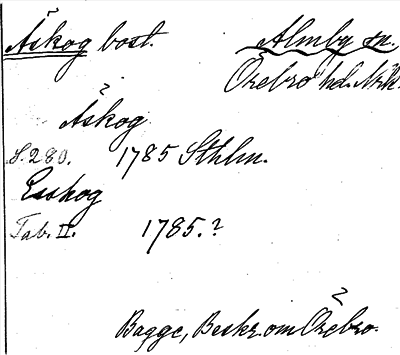 Åskog bost. Almby sn.
Örebro hd. Nrk.
Åskog
S. 280. 1785 Sthlm.
Esskog
Tab. II. 1785.?
Bagge, Beskr. om Örebro.